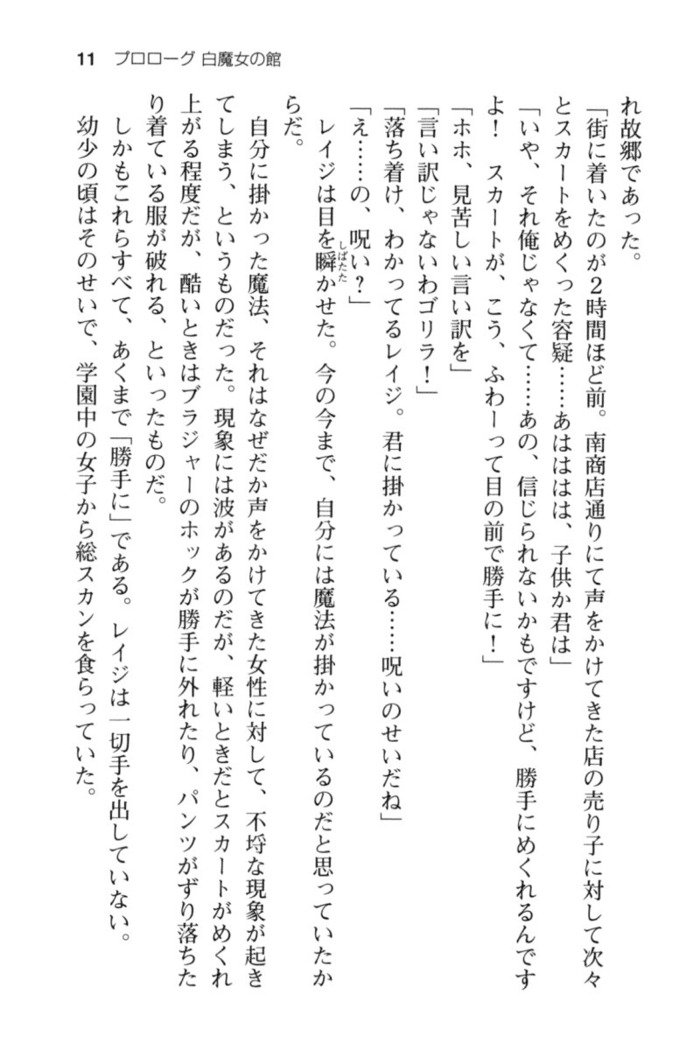 11 プロローグ 白魔女の館
れ故郷であった。
「街に着いたのが２時間ほど前。南商店通りにて声をかけてきた店の売り子に対して次々
とスカートをめくった容疑……あはははは、子供か君は」
「いや、それ俺じゃなくて……あの、信じられないかもですけど、勝手にめくれるんです
よ！　スカートが、こう、ふわーって目の前で勝手に！」
「ホホ、見苦しい言い訳を」
「言い訳じゃないわゴリラ！」
「落ち着け、わかってるレイジ。君に掛かっている……呪いのせいだね」
「え……の、呪い？」
レイジは目を瞬かせた。今の今まで、自分には魔法が掛かっているのだと思っていたか
しばたた
らだ。
自分に掛かった魔法、それはなぜだか声をかけてきた女性に対して、不埒な現象が起き
てしまう、というものだった。現象には波があるのだが、軽いときだとスカートがめくれ
上がる程度だが、酷いときはブラジャーのホックが勝手に外れたり、パンツがずり落ちた
り着ている服が破れる、といったものだ。
しかもこれらすべて、あくまで「勝手に」である。レイジは一切手を出していない。
幼少の頃はそのせいで、学園中の女子から総スカンを食らっていた。